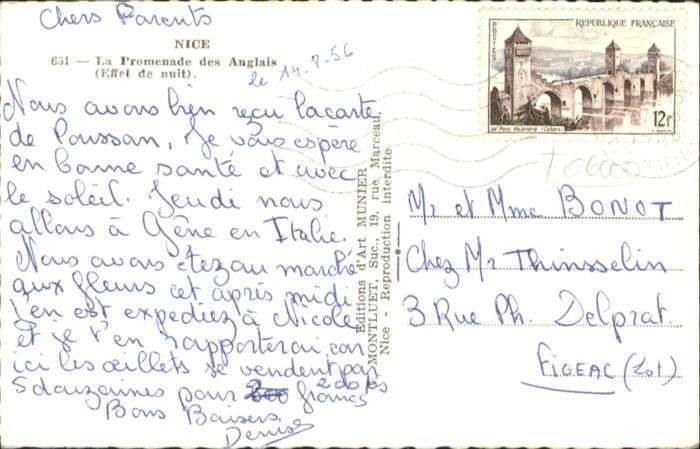 Chers Parents
NICE
651 — La Promenade des Anglais
(Effet de nuit).
le 14-7-56
Nous avons bien reçu la carte
de Poussan, Je vous espère
en bonne santé et avec
le soleil. Jeudi nous
allons à Gêne en Italie.
Nous avons étez au marché
aux fleurs cet après midi
j'en est expediez à Nicole
et je t'en rapporterai car
ici les œillets se vendent par
5 douzaines pour 200 frs francs
Bons Baisers
Denise
Editions d'Art MUNIER
MONTLUET, Suc., 19, rue Marceau,
Nice - Reproduction interdite
POSTES
REPUBLIQUE FRANÇAISE
12f
Le Pont Valentré (Cahors)
Mr et Mme BONOT
Chez Mr Thinsselin
3 Rue Ph. Delprat
FIGEAC (Lot)